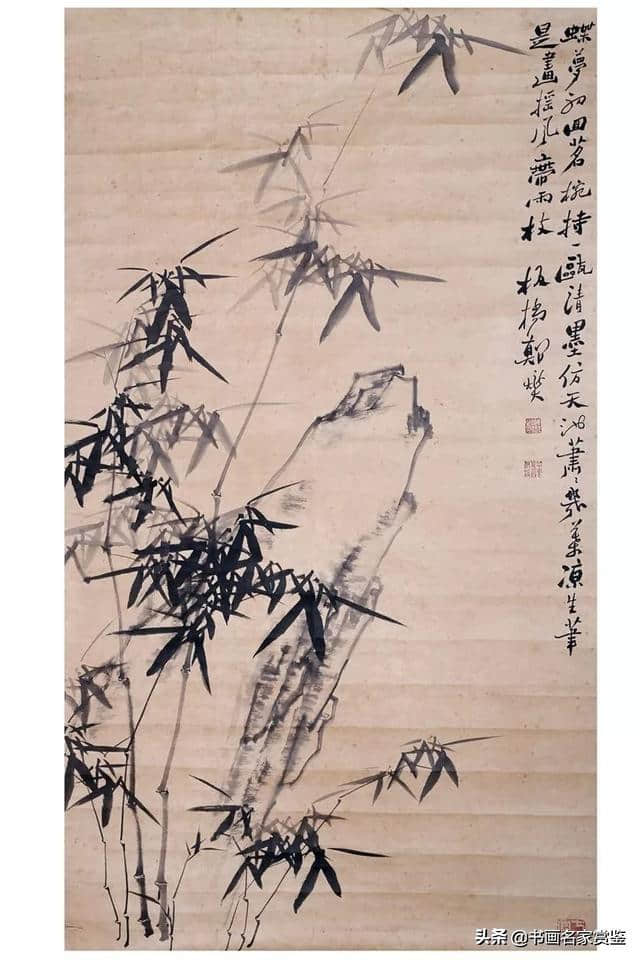 蝶夢初回茗椀持一甌清墨仿天池蕭〻幾葉涼生筆
是畫搖風帶雨枝 板橋鄭燮
头条 @书画名家赏鉴